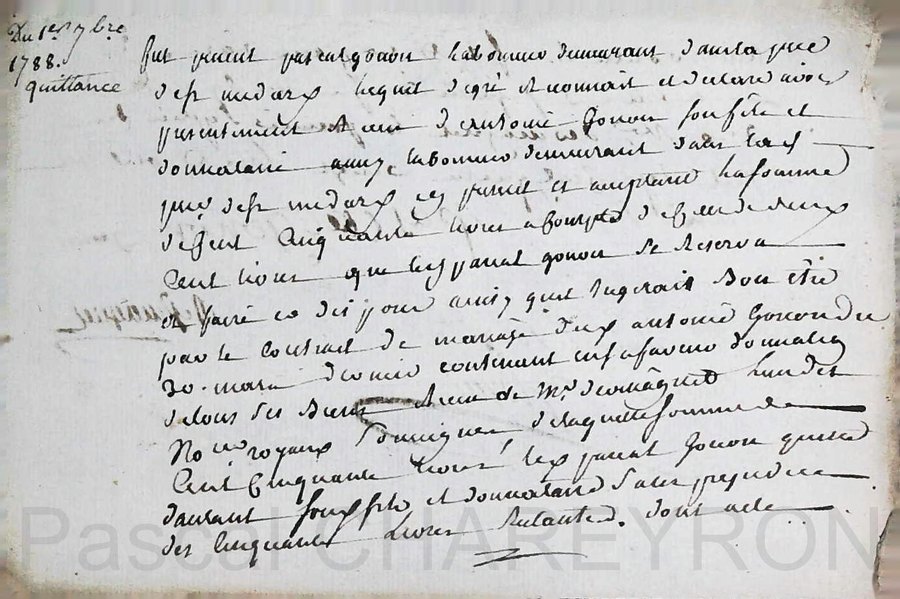 Du 1er 7bre
1788.
quittance
fut présent pascal gonon laboureur demeurant dans la psse
de st medard lequel de gré reconnait et declare avoir
presentement reçu d'antoine Gonon son fils et
donnataire aussy laboureur demeurant dans lad
psse de st medard icy present et acceptant la somme
de cent cinquante livres acompte de celle de deux
cent livres que led pascal gonon se reserva
et faire ce dès jours ainsy quil lugerait Bon être
par le contrat de mariage dud antoine Gonon du
30. mars dernier contenant en sa faveur donnation
de tous ses Biens Recu de Me lun des
Nores royaux soussignes de laquelle somme de
Cent Cinquante livres led pascal Gonon quitte
dautant sond fils et donnataire sans prejudice
des Cinquante Livres Restantes. dont acte
Pascal CHAREYRON